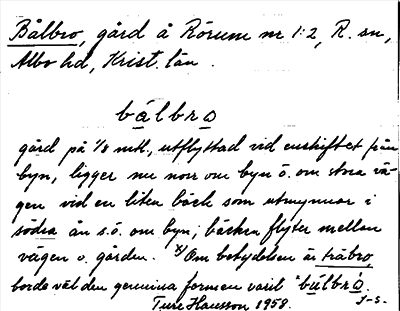 Bålbro, gård å Rörum nr 1:2, R. sn,
Albo hd, Krist. län.
bålbro
gård på 1/8 mtl., utflyttad vid enskiftet från
byn, ligger nu norr om byn ö. om stora vä-
gen vid en liten bäck som utmynnar i
södra ån s.ö. om byn; bäcken flyter mellan
vägen o. gården. x) Om betydelsen är träbro
borde väl den genuina formen varit *bulbro.
Ture Hansson 1958. J-S.